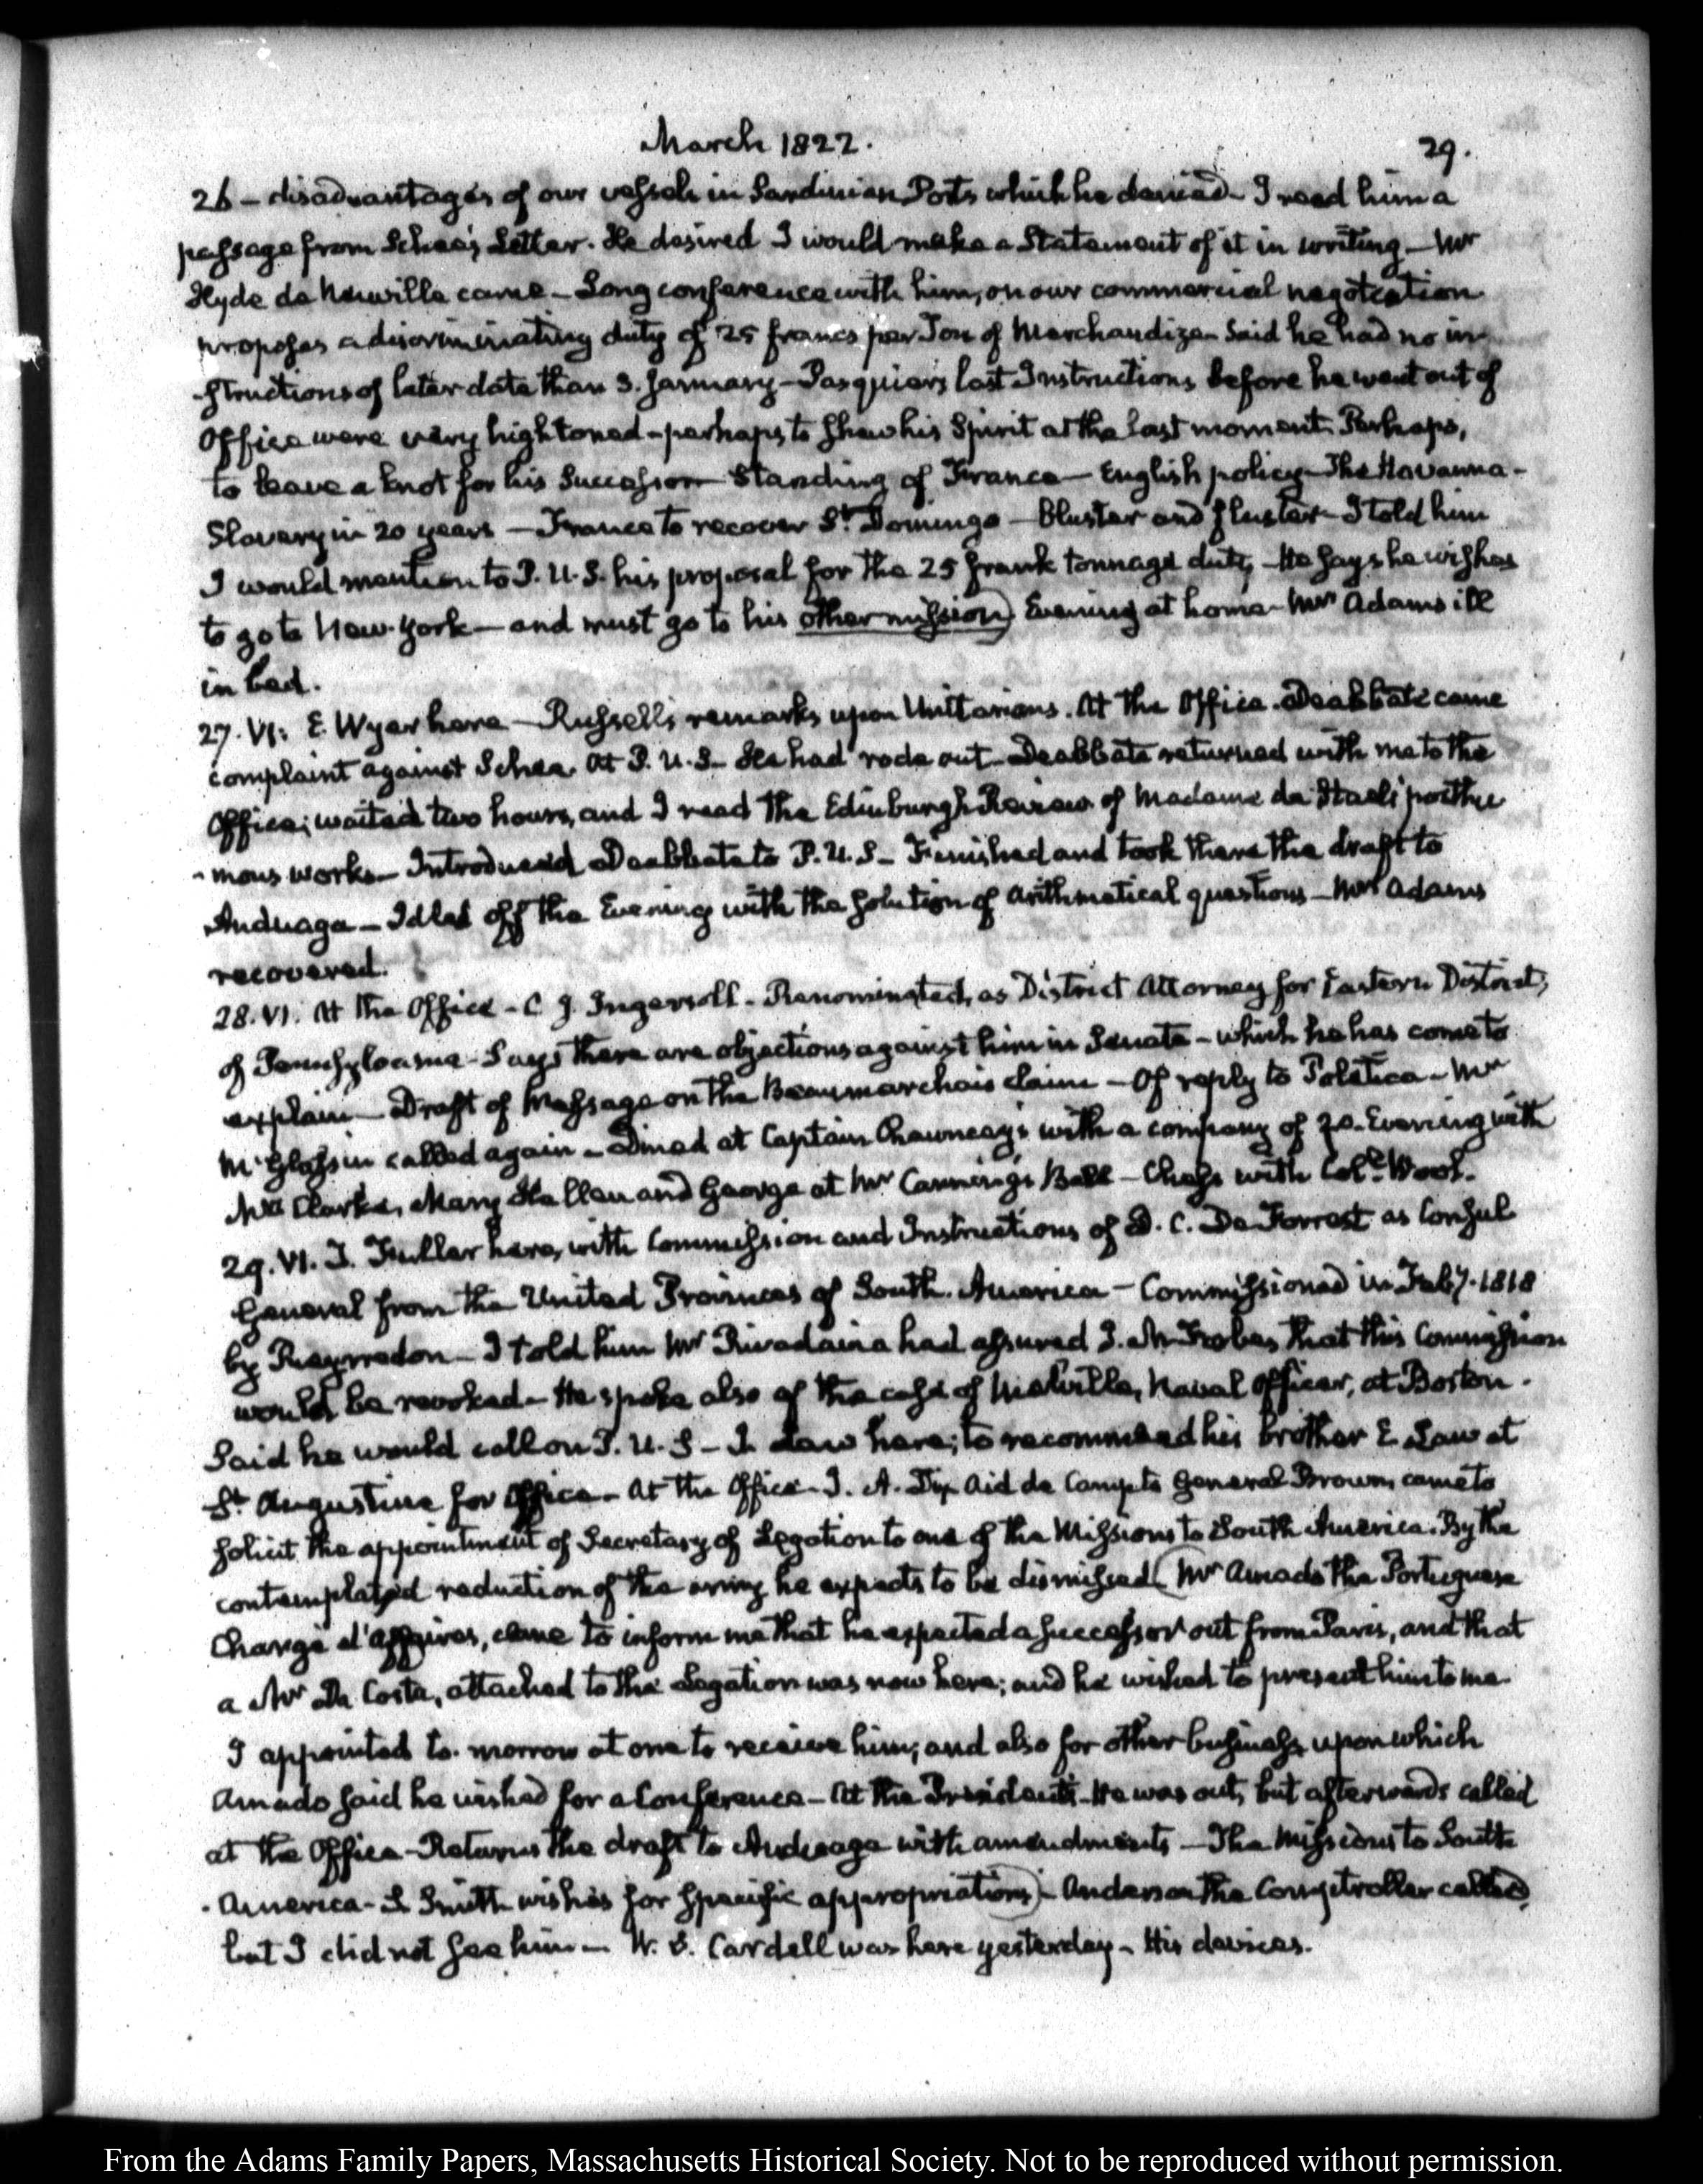 March 1822.
29.
26 – disadvantages of our vessels in Sardinian Ports which he denied – I read him a
passage from Schee's Letter. He desired I would make a Statement of it in writing – Mr
Hyde de Neuville came – Long conference with him, on our commercial negotiation
proposes a discriminating duty of 25 francs per Ton of Merchandize – Said he had no in-
-structions of later date than 3. January – Pasquier's last Instructions before he went out of
Office were very high toned – perhaps to shew his Spirit at the last moment. Perhaps,
to leave a knot for his Successor – Standing of France – English policy – The Havanna –
Slavery in 20 years – France to recover St. Domingo – Bluster and fluster – I told him
I would mention to P. U. S. his proposal for the 25 frank tonnage duty – He says he wishes
to go to New-York – and must go to his other mission) Evening at home – Mrs Adams ill
in bed.
27. VI: E. Wyer here – Russell's remarks upon Unitarians. At the Office. Deabbate came
complaint against Schee. At P. U. S – He had rode out – Deabbate returned with me to the
Office; waited two hours, and I read the Edinburgh Review of Madame de Stael's posthu
-mous works – Introduced Deabbate to P. U. S – Finished and took there the draft to
Anduaga – Idled off the Evening with the solution of arithmetical questions – Mrs Adams
recovered.
28. VI. At the Office – C J. Ingersoll – Renominated, as District Attorney for Eastern District,
of Pennsylvania – Says there are objections against him in Senate – which he has come to
explain – Draft of Message on the Beaumarchais claim – Of reply to Poletica – Mr
McGlassin called again – Dined at Captain Chauncey's with a company of 20 – Evening with
Mrs Clarke, Mary Hellen and George at Mr Canning's Ball – Chess with Col. Wool.
29. VI. T. Fuller here, with Commission and Instructions of D. C. De Forrest as Consul
General from the United Provinces of South. America – Commissioned in Feby. 1818
by Pueyrredon – I told him Mr Rivadaira had assured J. M. Forbes that this Commission
would be revoked – He spoke also of the case of Melville, Naval Officer, at Boston.
Said he would call on P. U. S – T. Law here; to recommend his brother E. Law at
St. Augustine for Office – At the Office – J. A. Dix Aid de Camp to General Brown, came to
solicit the appointment of Secretary of Legation to one of the Missions to South America. By the
contemplated reduction of the army he expects to be dismissed (Mr Amado the Portuguese
Chargé d'Affaires, came to inform me that he expected a successor out from Paris, and that
a Mr Da Costa, attached to the Legation was now here; and he wished to present him to me.
I appointed to-morrow at one to receive him; and also for other business upon which
Amado said he wished for a Conference – At the President's – He was out, but afterwards called
at the Office – Returns the draft to Anduaga with amendments – The Missions to South
America – S Smith wishes for specific appropriations) – Anderson the Comptroller called,
but I did not see him – W. S. Cardell was here yesterday – His devices.
From the Adams Family Papers, Massachusetts Historical Society. Not to be reproduced without permission.